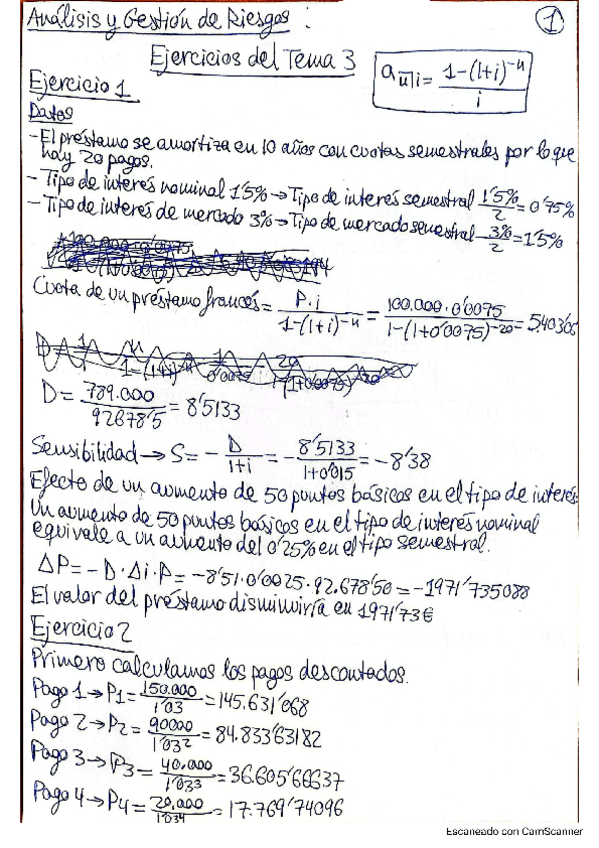 Análisis y Gestión de Riesgos :
1
Ejercicios del Tema 3
a n̅|i = 1-(1+i)^-n / i
Ejercicio 1
Datos
- El préstamo se amortiza en 10 años con cuotas semestrales por lo que
hay 20 pagos.
- Tipo de interés nominal 1'5% → Tipo de interés semestral 1'5%/2 = 0'75%
- Tipo de interés de mercado 3% → Tipo de mercado semestral 3%/2 = 1'5%
Cuota de un préstamo francés = P·i / 1-(1+i)^-n = 100.000·0'0075 / 1-(1+0'0075)^-20 = 5.403'06
D = 789.000 / 92678'5 = 8'5133
Sensibilidad → S = - D / 1+i = - 8'5133 / 1+0'015 = -8'38
Efecto de un aumento de 50 puntos básicos en el tipo de interés.
Un aumento de 50 puntos básicos en el tipo de interés nominal
equivale a un aumento del 0'25% en el tipo semestral.
ΔP = -D·Δi·P = -8'51·0'0025·92.678'50 = -1971'735088
El valor del préstamo disminuiría en 1971'73€
Ejercicio 2
Primero calculamos los pagos descontados.
Pago 1 → P1 = 150.000 / 1'03 = 145.631'068
Pago 2 → P2 = 90000 / 1'03^2 = 84.833'63182
Pago 3 → P3 = 40.000 / 1'03^3 = 36.605'66637
Pago 4 → P4 = 20.000 / 1'03^4 = 17.769'74096
Escaneado con CamScanner